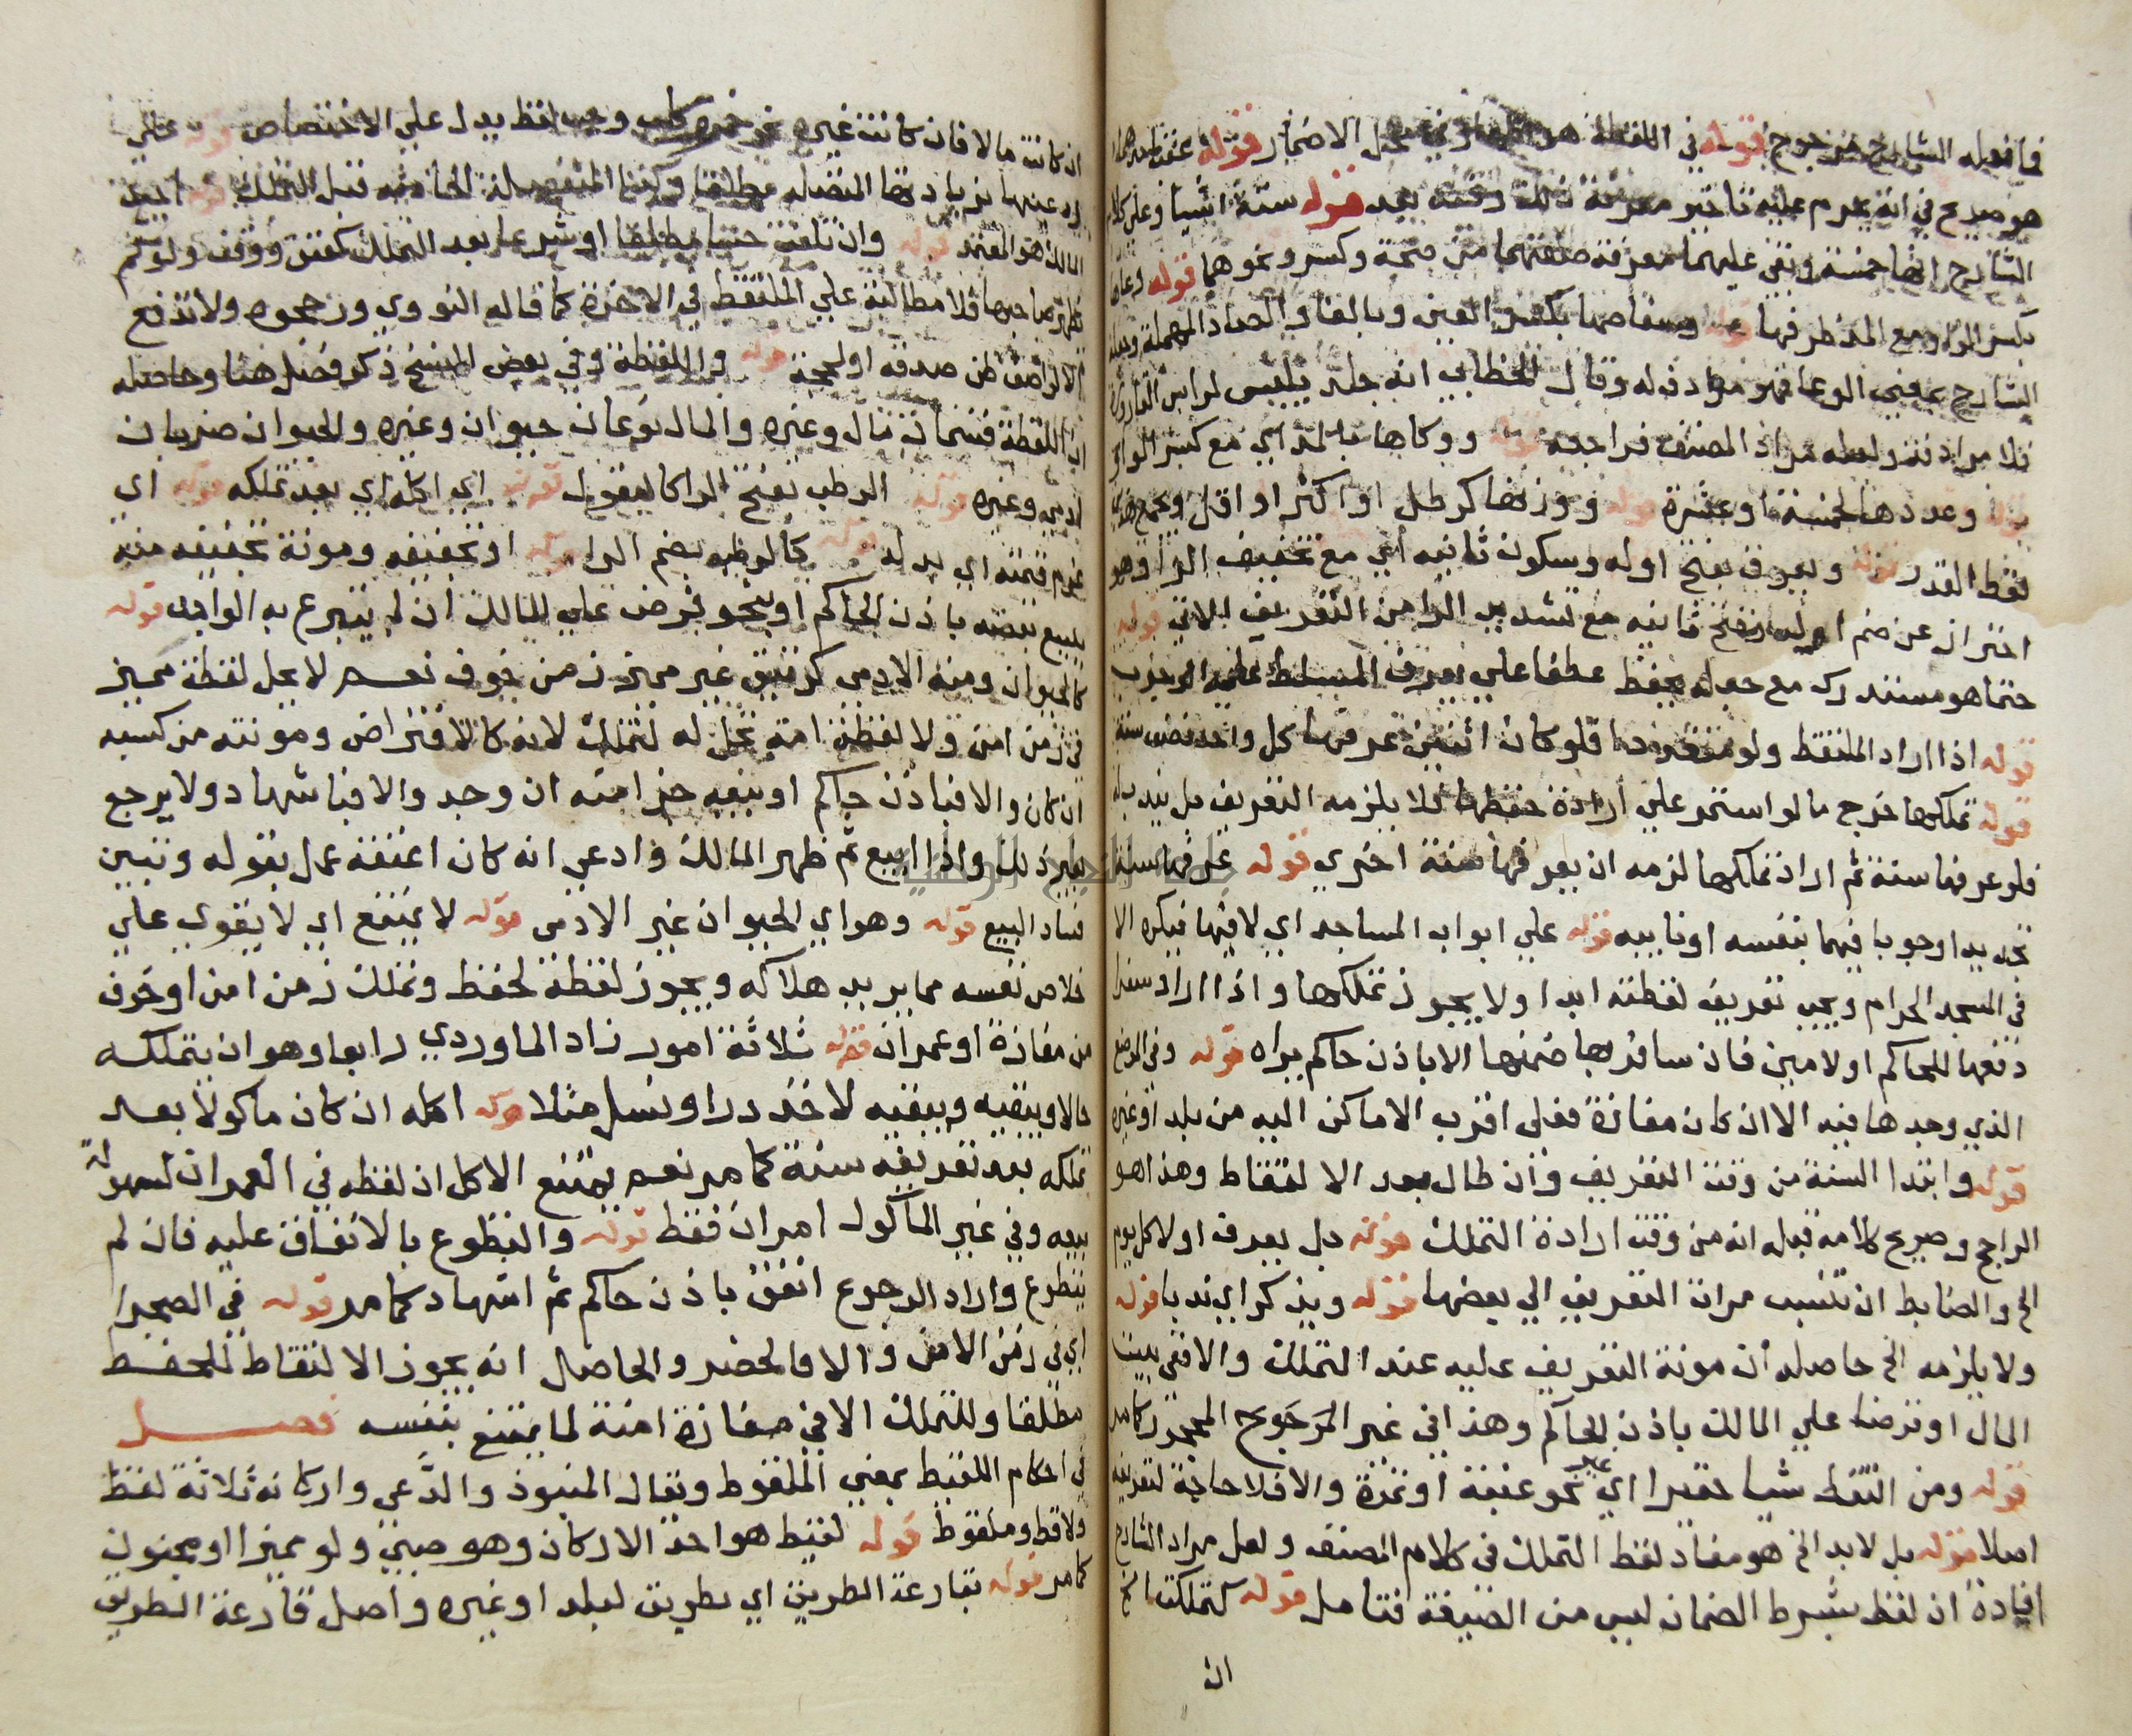 فما فعله الشارح مرجوح قوله في اللقطة هو اظهار في محل الاضمار قوله
هو صريح في انه يحرم عليه تاخير معرفة ذلك وقته بعد قوله ستة اشيا وعلى كلام
الشارح انها خمسة وبقي عليهما معرفة صفتهما من صحة وكسر ونحوهما قوله وعاها
بكسر الواو مع المد ظرفها قوله وعفاصها بكسر العين وبالفا والصاد المهملة وجعله
الشارح بمعني الوعا فهو مرادف له وقال الخطابي انه جلد يلبس لراس القارورة
فلا مرادفة ولعله مراد المصنف فراجعه قوله ووكاها بالمد اي مع كسر الواو
قوله وعددها كخمسة او عشرة قوله ووزنها كرطل او اكثر او اقل
فقط القدر قوله ويعرف بفتح اوله وسكون ثانيه اي مع تخفيف الرا وهو
احتراز عن ضم اوله وفتح ثانيه مع تشديد الرا من التعريف الاتي قوله
حتما هو مستدرك مع جعله يحفظ عطفا علي يعرف المسلط عليه الوجوب
قوله اذا اراد الملتقط ولو متعددا فلو كان اثنين عرفها كل واحد نصف سنة
قوله تملكها خرج ما لو استمر علي ارادة حفظها فلا يلزمه التعريف بل يندب له
فلو عرفها سنة ثم اراد تملكها لزمه ان يعرفها سنة اخري قوله عرفها سنة
تحديدا وجوبا فيهما بنفسه او نايبه قوله علي ابواب المساجد اي لا فيها فيكره الا
في المسجد الحرام ويجب تعريف لقطته ابدا ولا يجوز تملكها واذا اراد سفرا
دفعها للحاكم او لامين فان سافر بها ضمنها الا باذن حاكم يراه قوله وفي الموضع
الذي وجدها فيه الا ان كان مفازة ففي اقرب الاماكن اليه من بلد او غيره
قوله وابتدا السنة من وقت التعريف وان طال بعد الالتقاط وهذا هو
الراجح وصريح كلامه قبله انه من وقت ارادة التملك قوله بل يعرف اولا كل يوم
الخ والضابط ان تنسب مرات التعريف الي بعضها قوله ويذكر اي ندبا قوله
ولا يلزمه الخ حاصله ان مونة التعريف عليه عند التملك والا ففي بيت
المال او قرضا علي المالك باذن الحاكم وهذا في غير المرجوح المحجور كما مر
قوله ومن التقط شيا حقيرا اي نحو عنبة او تمرة والا فلا حاجة لتعريفه
اصلا قوله بل لا بد الخ هو مفاد لفظ التملك في كلام المصنف ولعل مراد الشارح
افادة ان لفظ بشرط الضمان ليس من الصيغة فتامل قوله كتملكت الخ
ان
ان كانت مالا فان كانت غيره نحو خمرة وكلب وجب لفظ يدل علي الاختصاص قوله
رد عينها بزيادتها المتصله مطلقا وكذا المنفصلة الحادثة قبل التملك قوله
المالك هو المعتمد قوله وان تلفت حسا مطلقا او شرعا بعد التملك كعتق ووقف ولو لم
يظهر صاحبها فلا مطالبة علي الملتقط في الاخرة كما قاله النووي ورجحوه ولا تدفع
الا لواصف ظن صدقه او لحجة قوله واللقطة وفي بعض النسخ ذكر فصل هنا وحاصله
ان اللقطة قسمان مال وغيره والمال نوعان حيوان وغيره والحيوان ضربان
ادمي وغيره قوله الرطب بفتح الرا كالبقول قوله اي اكله اي بعد تملكه قوله اي
غرم قيمته اي بدله قوله كالرطب بضم الرا قوله او تجفيفه ومونة تجفيفه منه
ببيع بعضه باذن الحاكم او بنحو قرض علي المالك ان لم يتبرع به الواجد قوله
كالحيوان ومنه الادمي كرقيق غير مميز زمن خوف نعم لا يحل لقطة مميز
في زمن امن ولا لقطة امة تحل له لتملك لانه كالاقتراض ومونته من كسبه
ان كان والا فباذن حاكم او ببيع جزا منه ان وجد والا فباشهاد ولا يرجع
بغير ذلك واذا بيع ثم ظهر المالك وادعي انه كان اعتقه عمل بقوله وتبين
فساد البيع قوله وهو اي الحيوان غير الادمي قوله لا يمتنع اي لا يقوي علي
خلاص نفسه مما يريد هلاكه ويجوز لقطة لحفظ وتملك زمن امن او خوف
من مفازة او عمران قوله ثلاثة امور زاد الماوردي رابعا وهو ان يتملكه
حالا ويبقيه لاخذ درا ونسل مثلا قوله اكله ان كان ماكولا بعد
تملكه بعد تعريفه سنة كما مر نعم يمتنع الاكل ان لقطه في العمران لسهولة
بيعه وفي غير الماكول امران فقط قوله والتطوع بالانفاق عليه فان لم
يتطوع واراد الرجوع انفق باذن حاكم ثم اشهاد كما مر قوله في الصحرا
اي في زمن الامن والا فالحضر والحاصل انه يجوز الالتقاط للحفظ
مطلقا وللتملك الا في مفازة امنة لما يمتنع بنفسه فصل
في احكام اللقيط بمعني الملقوط ويقال المنبوذ والدعي واركانه ثلاثة لقط
ولاقط وملقوط قوله لقيط هو احد الاركان وهو صبي ولو مميزا او مجنون
كما مر قوله بقارعة الطريق اي طريق لبلد او غيره واصل قارعة الطريق